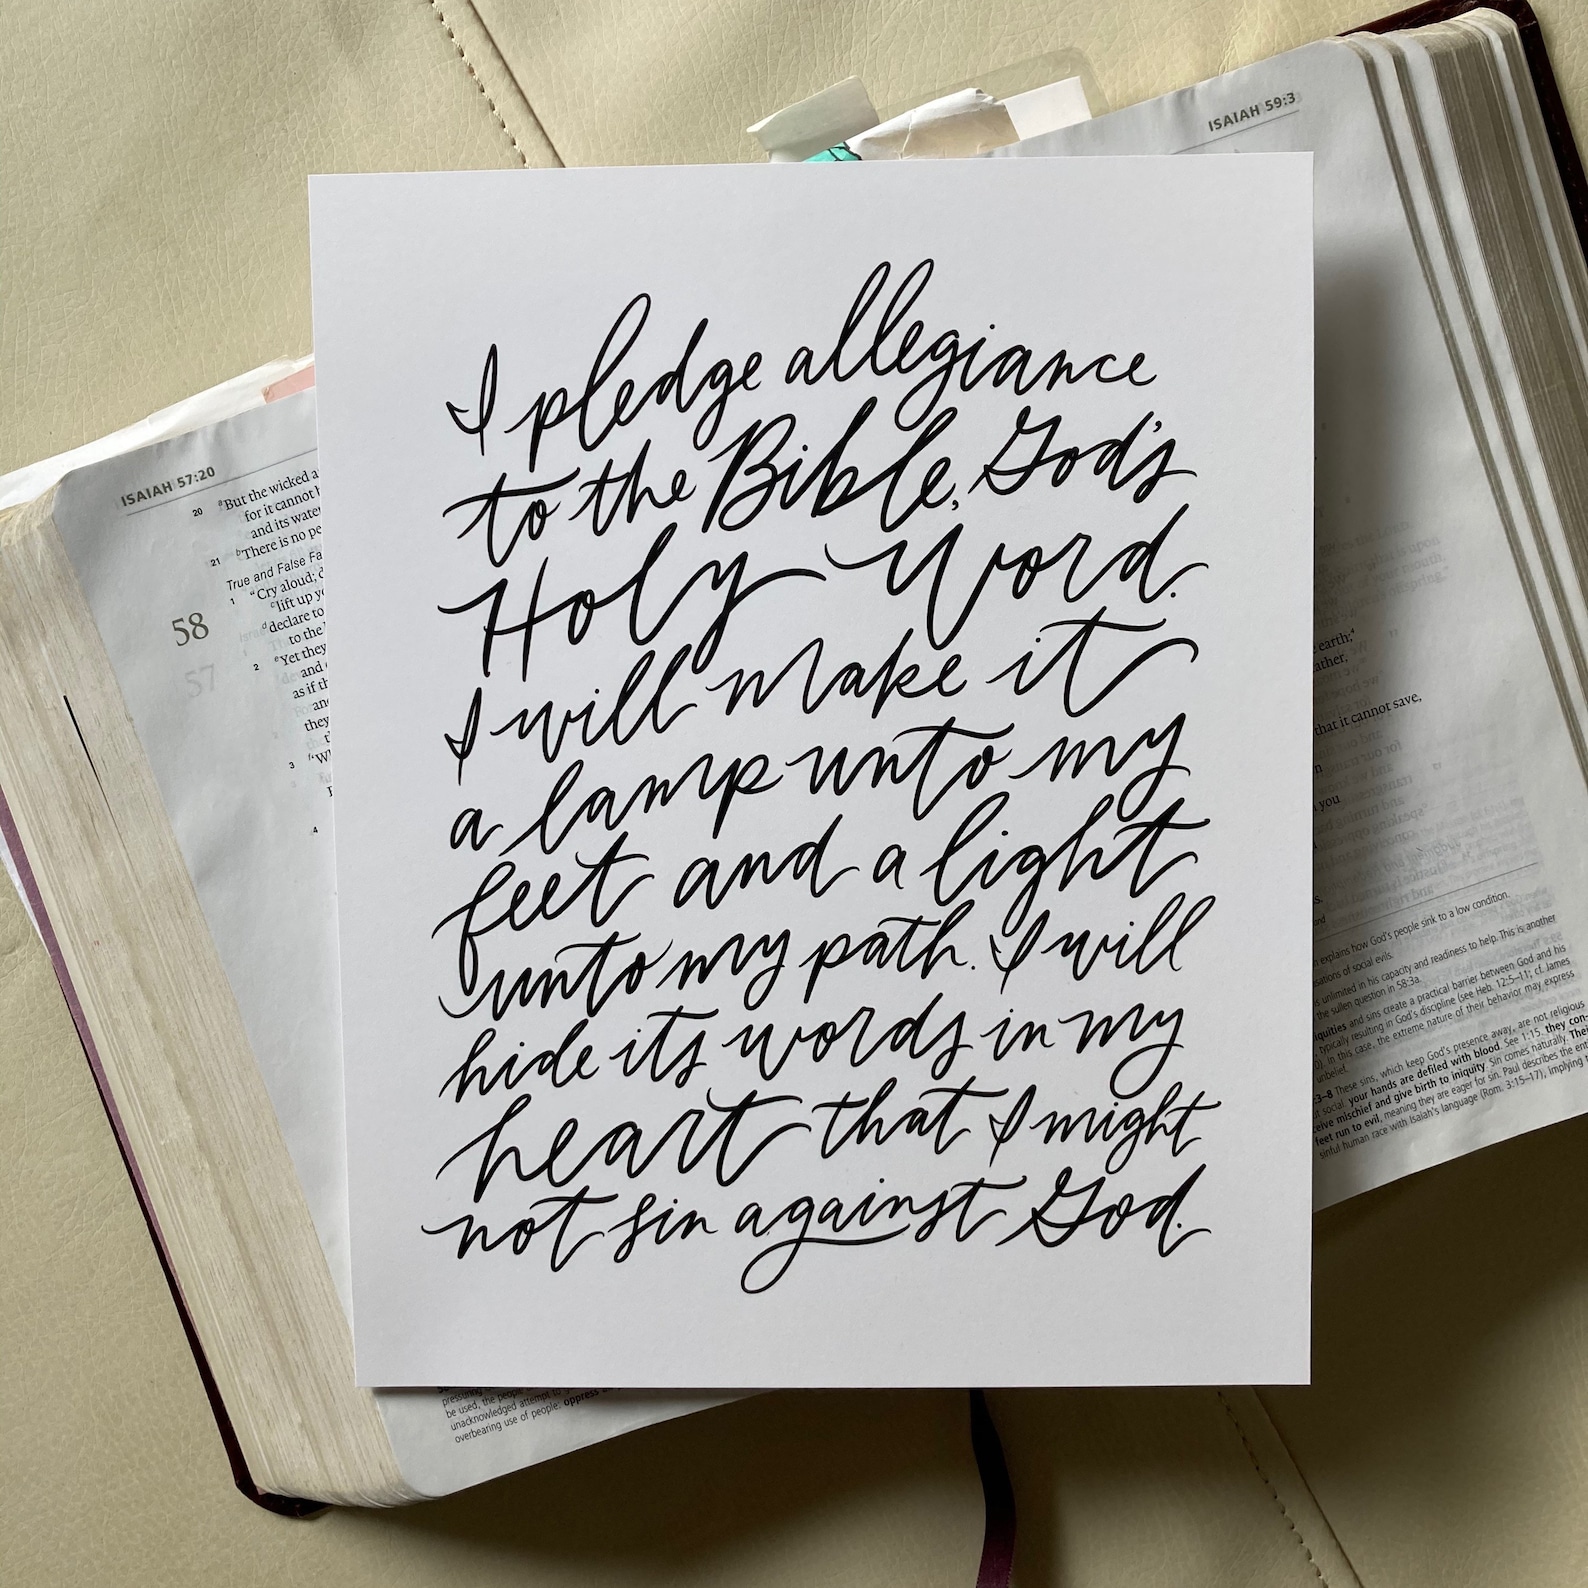 ISAIAH 59:3
I pledge allegiance
to the Bible, God's
Holy Word.
I will make it
a lamp unto my
feet and a light
unto my path. I will
hide its words in my
heart that I might
not sin against God.
ISAIAH 57:20
20 But the wicked a
for it cannot
and its wate
21 There is no pe
True and False Fa
58
1 "Cry aloud;
lift up yo
declare to
to the
2 Yet they
and
as if th
an
they
3 'W
4
57
earth;
ather,
that it cannot save,
you
explains how God's people sink to a low condition.
ations of social evils.
is unlimited in his capacity and readiness to help. This is another
the sullen question in 58:3a.
iquities and sins create a practical barrier between God and his
, typically resulting in God's discipline (see Heb. 12:5–11; cf. James
). In this case, the extreme nature of their behavior may express
unbelief.
3–8 These sins, which keep God's presence away, are not religious
t social. your hands are defiled with blood. See 1:15. they con-
ceive mischief and give birth to iniquity. Sin comes naturally. Thei
feet run to evil, meaning they are eager for sin. Paul describes the ent
sinful human race with Isaiah's language (Rom. 3:15–17), implying
pressuring
be used, the people
unacknowledged attempt to
overbearing use of people; oppress